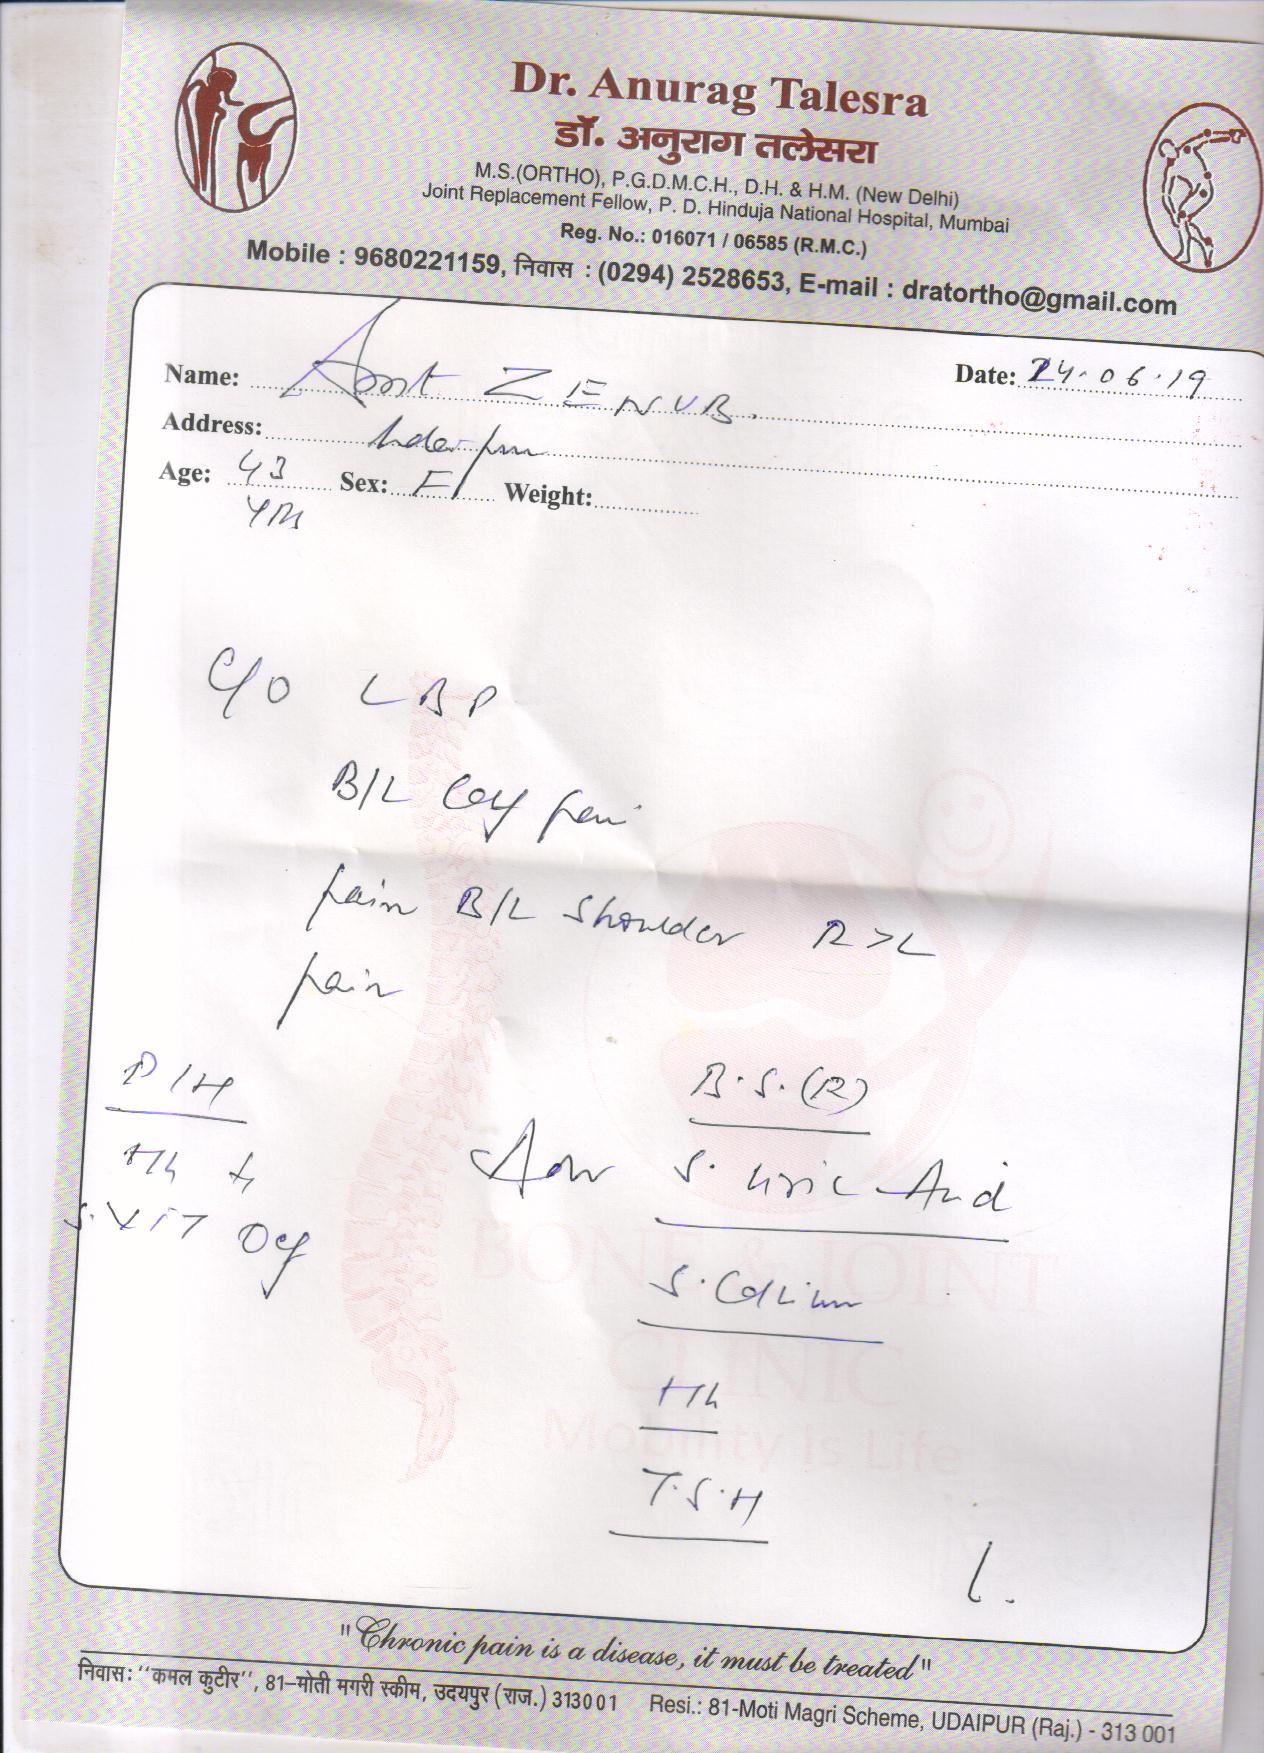 Dr. Anurag Talesra
डॉ. अनुराग तलेसरा
M.S.(ORTHO), P.G.D.M.C.H., D.H. & H.M. (New Delhi)
Joint Replacement Fellow, P. D. Hinduja National Hospital, Mumbai
Reg. No.: 016071 / 06585 (R.M.C.)
Mobile : 9680221159, निवास : (0294) 2528653, E-mail : dratortho@gmail.com
Name: ZENUB. Date: 24.06.19
Address:
Age: 43 Sex: F Weight:
C/O LBP
B/L pain
pain B/L Shoulder R>L
pain
P/H B.S.(R)
Hb S. Uric Acid
S. VIT S. Calcium
Hb
T.S.H
BONE & JOINT
CLINIC
Mobility is Life
"Chronic pain is a disease, it must be treated"
निवास: ''कमल कुटीर'', 81–मोती मगरी स्कीम, उदयपुर (राज.) 313001 Resi.: 81-Moti Magri Scheme, UDAIPUR (Raj.) - 313 001